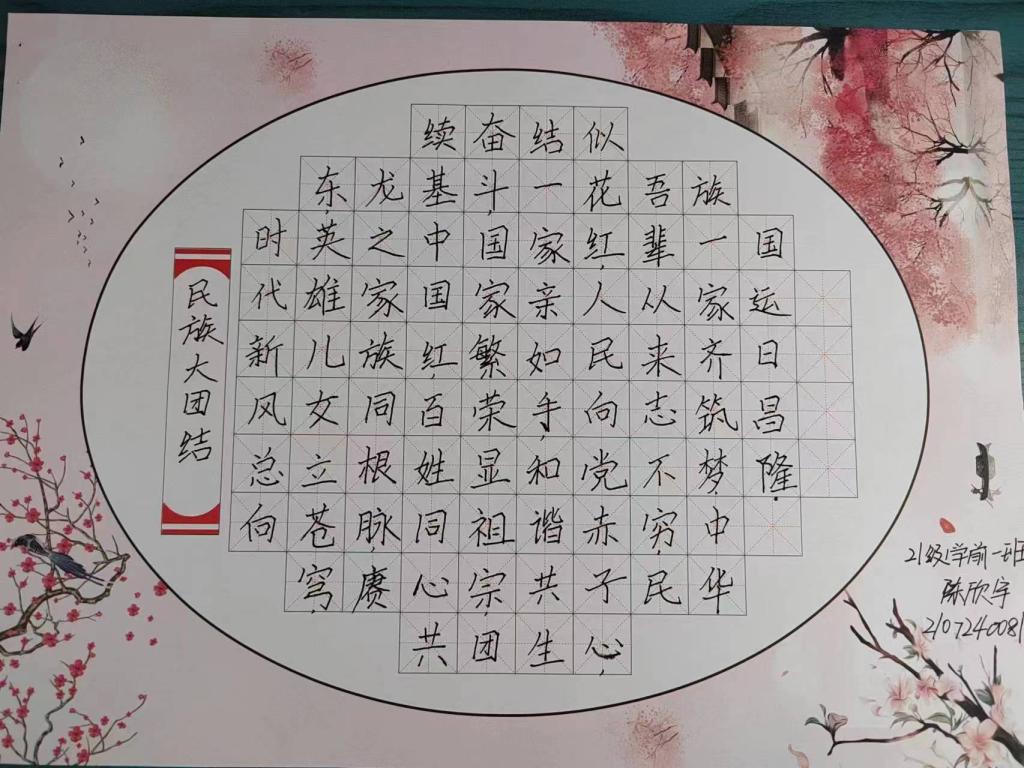 民族大团结
时代新风总向
东,英雄儿女立苍穹,
龙之家族同根脉,赓
续基中国红,百姓同心共
奋斗,国家繁荣显祖宗,团
结一家亲如手,和谐共生
似花红,人民向党赤子心,
吾辈从来志不穷,民
族一家齐筑梦,中华
国运日昌隆.
21级学前一班
陈欣宇
210724008